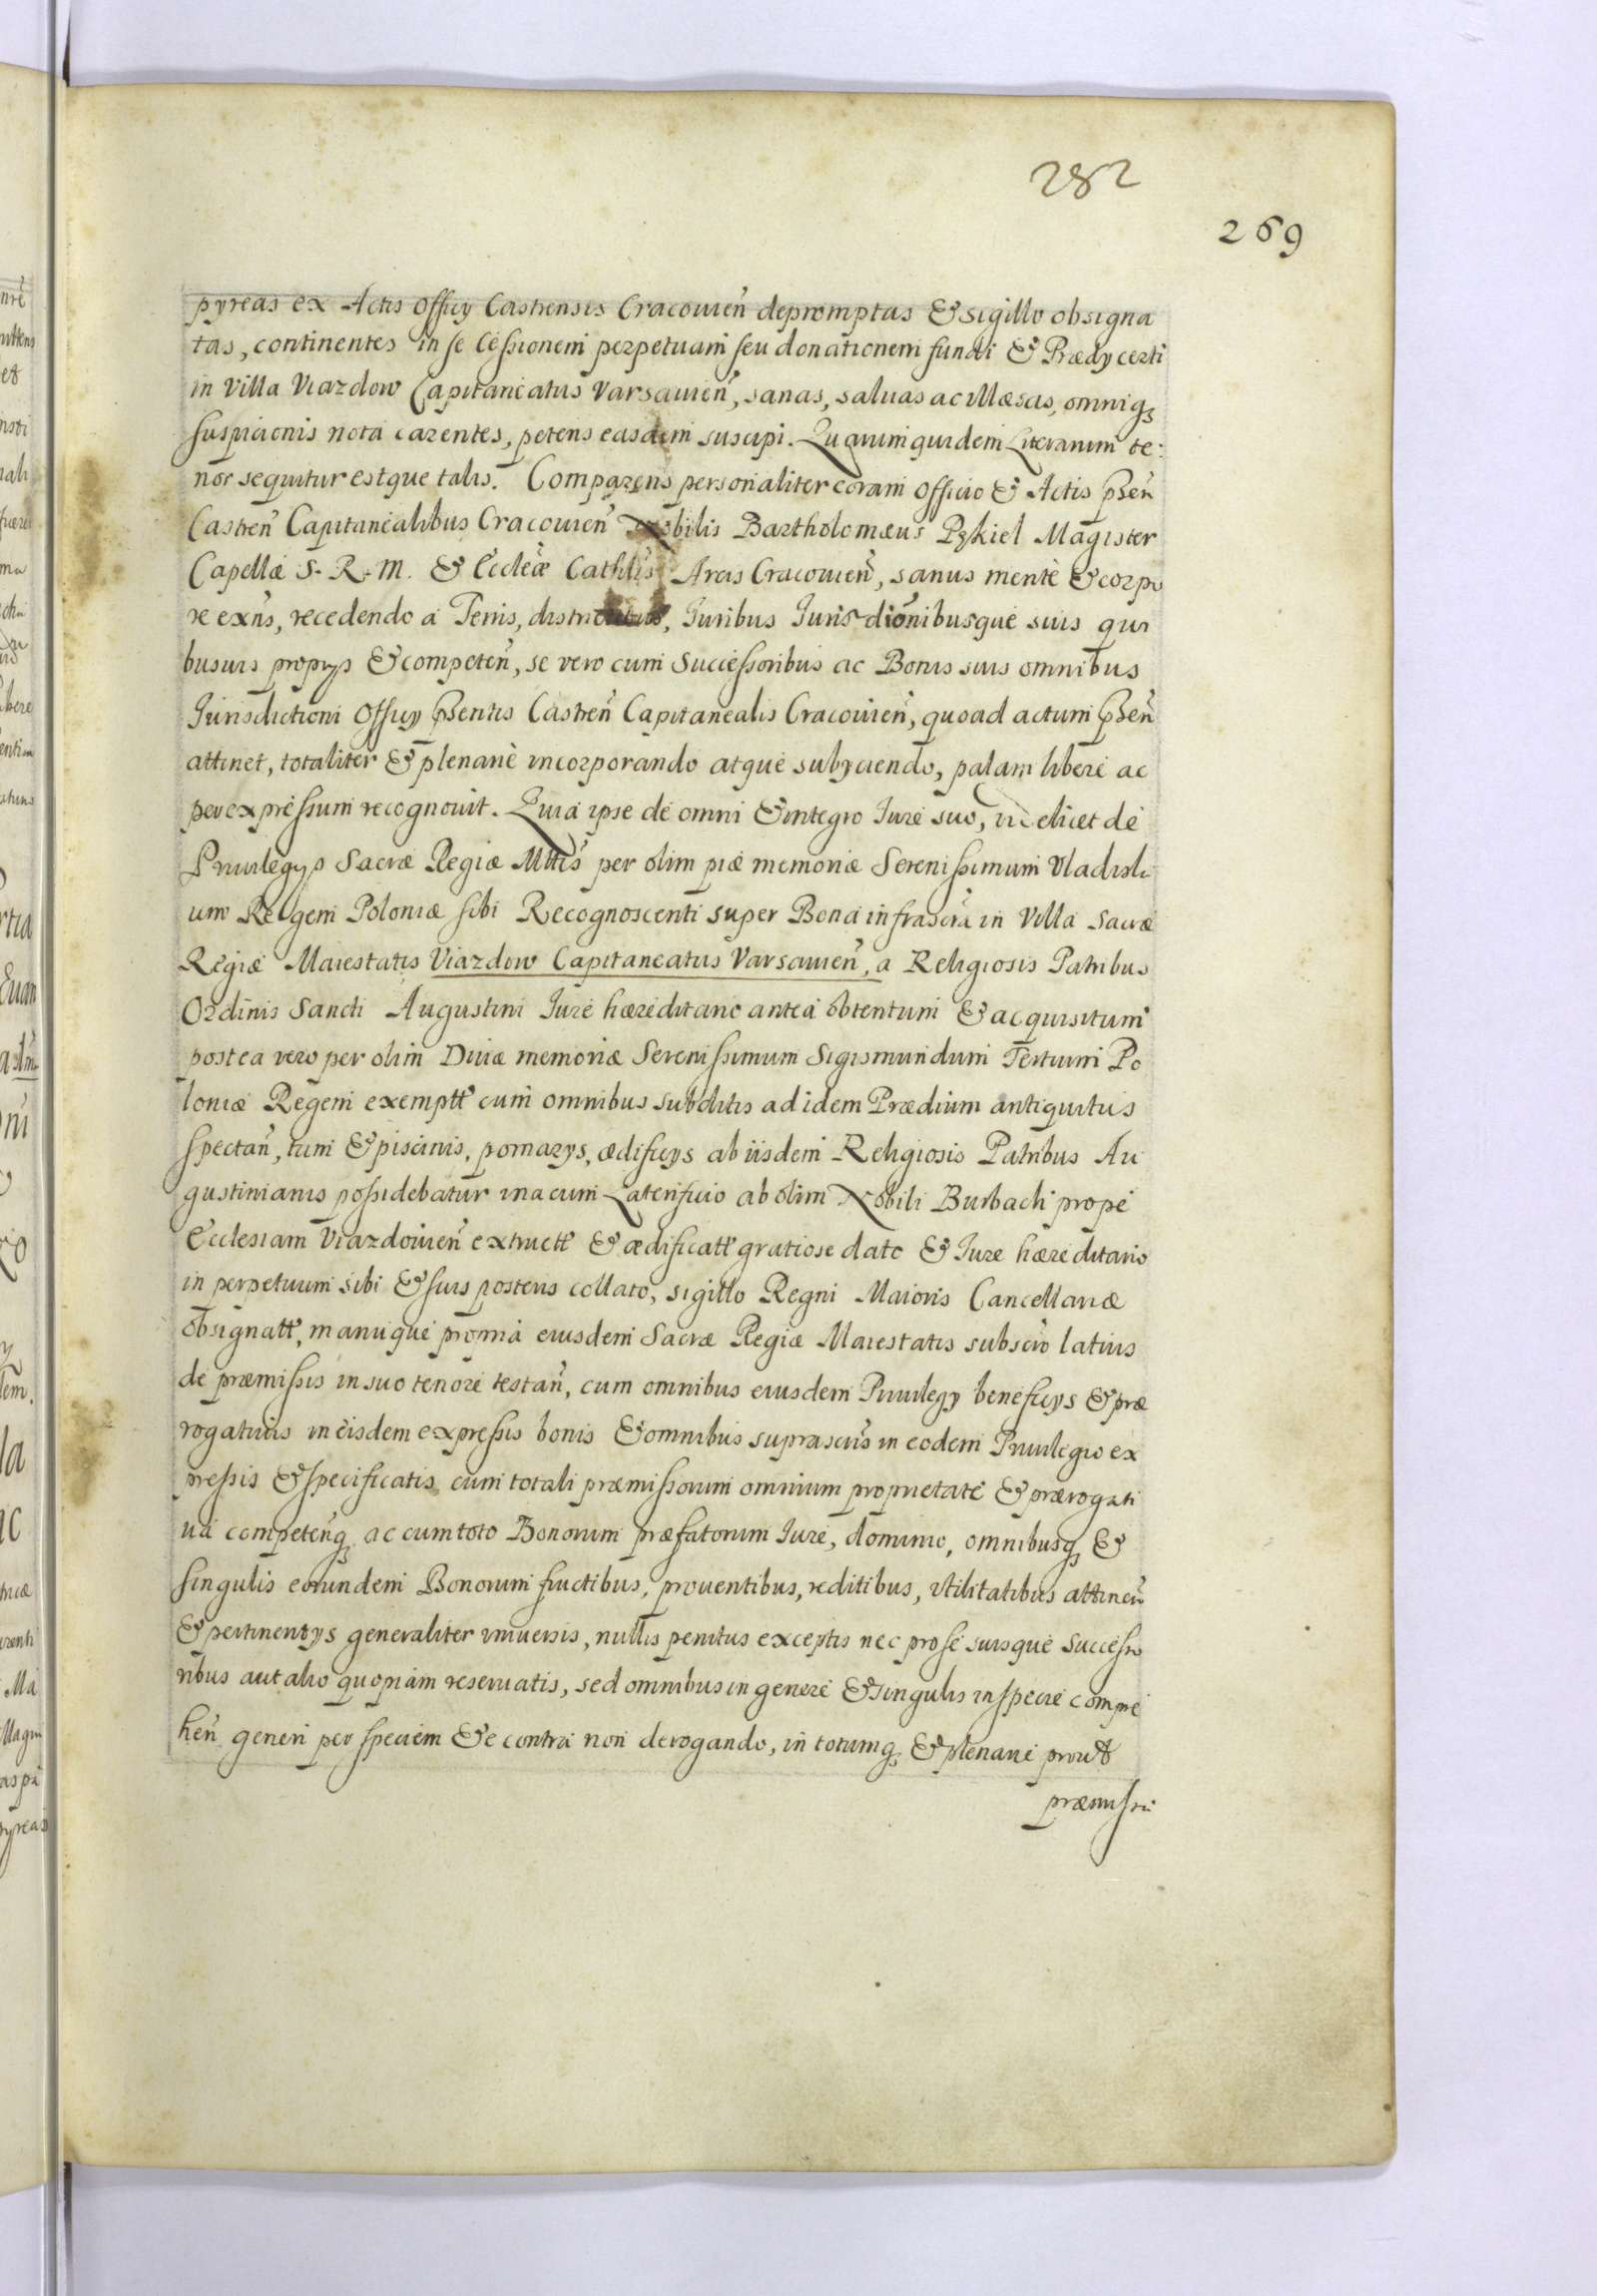 282
269
pyreas ex Actis Officij Castrensis Cracouień depromptas & sigillo obsigna
tas, continentes in se Cessionem perpetuam seu donationem fundi & Prædij certi
in Villa Viazdow Capitaneatus Varsauień, sanas, saluas ac illæsas, omniq3
suspicionis nota carentes, petens easdem suscipi. Quarum quidem Literarum te:
nor sequitur estque talis. Comparens personaliter coram Officio & Actis pñseń
Castreń Capitanealibus Cracouień Nobilis Bartholomæus Pękiel Magister
Capellæ S. R. M. & Eccleæ Cathlis Arcis Cracouień, sanus mente & corpo
re exńs, recedendo a Terris, districtibus, Iuribus Iurisdiōnibusque suis qui
busuis proprijs & competeń, se vero cum Successoribus ac Bonis suis omnibus
Iurisdictioni Officij pñsentis Castreń Capitanealis Cracouień, quoad actum pñseń
attinet, totaliter & plenarie incorporando atque subijciendo, palam libere ac
per expressum recognouit. Quia ipse de omni & integro Iure suo, videlicet de
Priuilegijs Sacræ Regiæ Mttis per olim piæ memoriæ Serenissimum Vladisla
um Regem Poloniæ sibi Recognoscenti super Bona infrascra in Villa Sacræ
Regiæ Maiestatis Viazdow Capitaneatus Varsauień, a Religiosis Patribus
Ordinis Sancti Augustini Iure hæreditario antea obtentum & acquisitum
postea vero per olim Diuæ memoriæ Serenissimum Sigismundum Tertium Po
loniæ Regem exemptt cum omnibus subditis ad idem Prædium antiquitus
spectań, tum & piscinis, pomarijs, ædificijs ab iisdem Religiosis Patribus Au
gustinianis possidebatur vnacum Laterificio ab olim Nobili Burbach prope
Ecclesiam Viazdouień extructt & ædificatt gratiose dato & Iure hæreditario
in perpetuum sibi & suis posteris collato, sigillo Regni Maioris Cancellariæ
obsignatt, manuque propria eiusdem Sacræ Regiæ Maiestatis subscrō latius
de præmissis in suo tenore testań, cum omnibus eiusdem Priuilegij beneficijs & præ
rogatiuis in eisdem expressis bonis & omnibus suprascris in eodem Priuilegio ex
pressis & specificatis, cum totali præmissorum omnium proprietate & prærogati
ua competenq3 ac cum toto Bonorum præfatorum Iure, dominio, omnibusq3 &
singulis eorundem Bonorum fructibus, prouentibus, reditibus, vtilitatibus attineń
& pertinentijs generaliter vniuersis, nullis penitus exceptis nec pro se suisque Successo
ribus aut alio quopiam reseruatis, sed omnibus in genere & singulis in specie compre
heń generi per speciem & e contra non derogando, in totumq3 & plenarie prout
præmissa